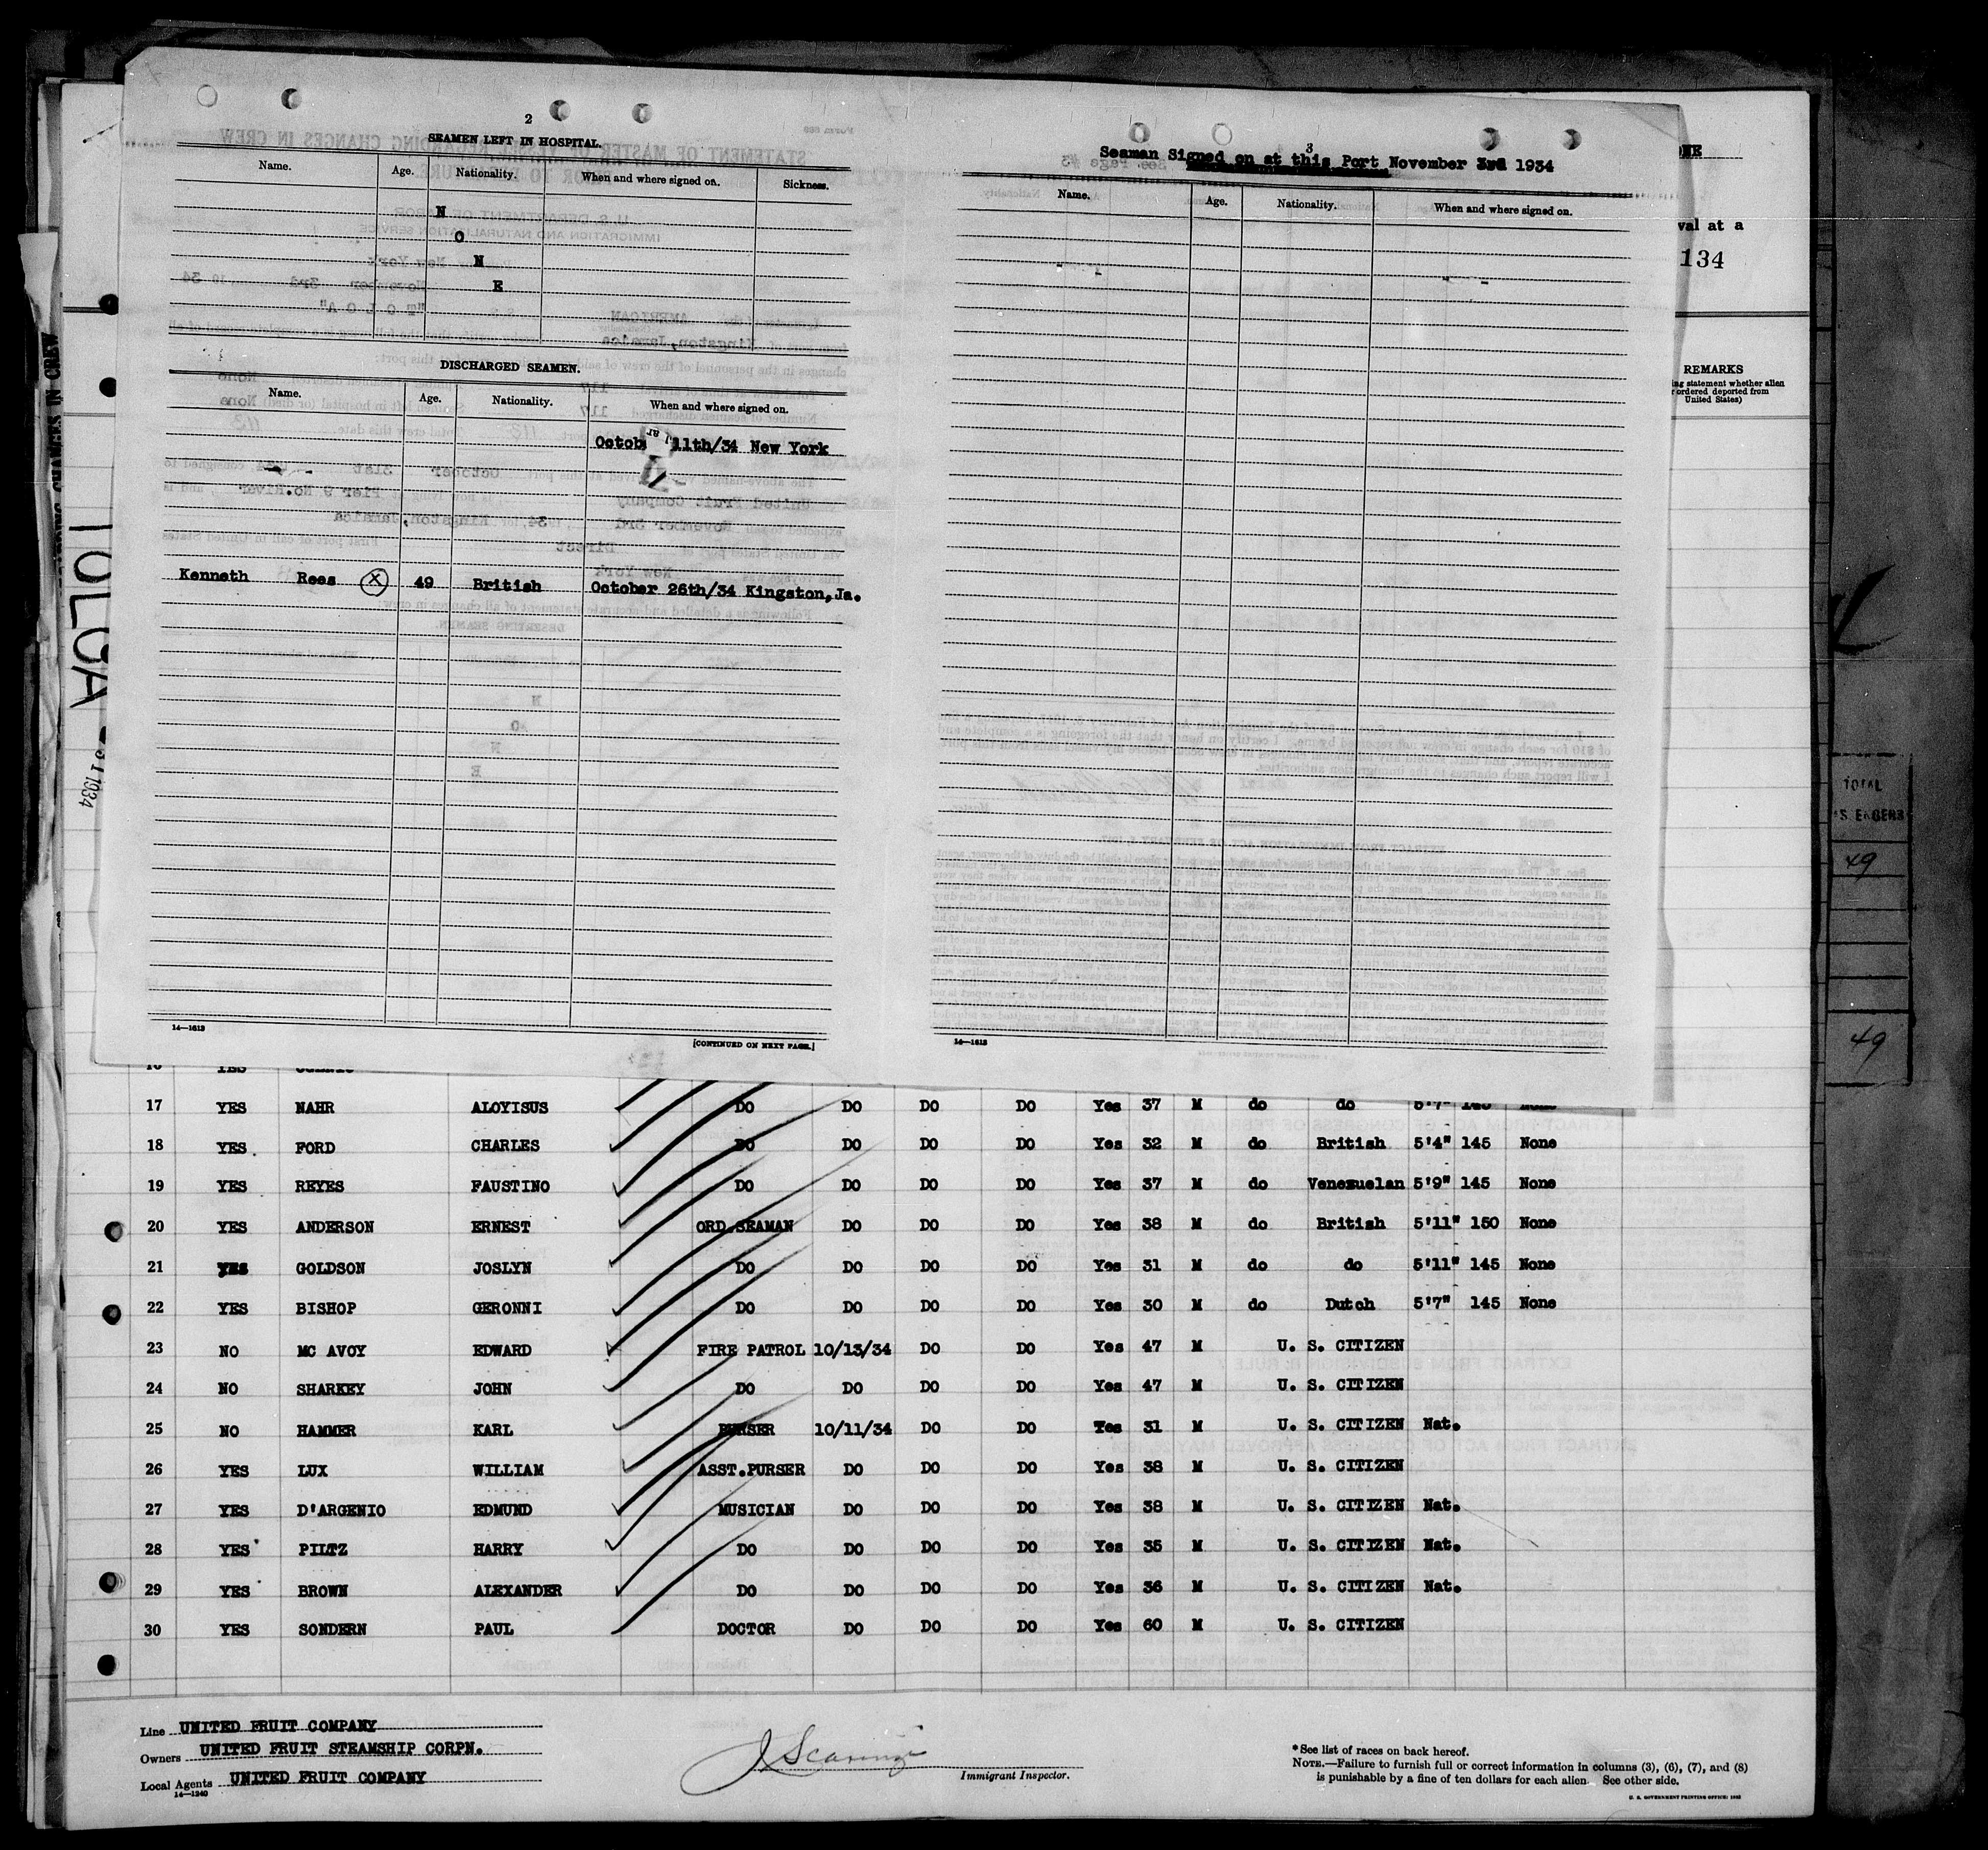 2
SEAMEN LEFT IN HOSPITAL.
Name. Age. Nationality. When and where signed on. Sickness.
N
O
N
E
DISCHARGED SEAMEN.
Name. Age. Nationality. When and where signed on.
11th/34 New York
Kenneth Rees X 49 British October 26th/34 Kingston, Ja.
14—1613
[CONTINUED ON NEXT PAGE.]
3
Seaman Signed on at this Port November 3rd 1934
Name. Age. Nationality. When and where signed on.
14—1613
val at a
134
REMARKS
ing statement whether alien
ordered deported from
United States)
TOTAL
49
49
TOLOA
1934
17 YES NAHR ALOYISUS DO DO DO DO Yes 37 M do do 5'7" 145 None
18 YES. FORD CHARLES DO DO DO DO Yes 32 M do British 5'4" 145 None
19 YES REYES FAUSTINO DO DO DO DO Yes 37 M do Venezuelan 5'9" 145 None
20 YES ANDERSON ERNEST ORD.SEAMAN DO DO DO Yes 38 M do British 5'11" 150 None
21 YES GOLDSON JOSLYN DO DO DO DO Yes 31 M do do 5'11" 145 None
22 YES BISHOP GERONNI DO DO DO DO Yes 30 M do Dutch 5'7" 145 None
23 NO MC AVOY EDWARD FIRE PATROL 10/13/34 DO DO Yes 47 M U. S. CITIZEN
24 NO SHARKEY JOHN DO DO DO DO Yes 47 M U. S. CITIZEN
25 NO HAMMER KARL PURSER 10/11/34 DO DO Yes 31 M U. S. CITIZEN Nat.
26 YES LUX WILLIAM ASST.PURSER DO DO DO Yes 38 M U. S. CITIZEN
27 YES D'ARGENIO EDMUND MUSICIAN DO DO DO Yes 38 M U. S. CITIZEN Nat.
28 YES PILTZ HARRY DO DO DO DO Yes 35 M U. S. CITIZEN Nat.
29 YES BROWN ALEXANDER DO DO DO DO Yes 36 M U. S. CITIZEN Nat.
30 YES SONDERN PAUL DOCTOR DO DO DO Yes 60 M U. S. CITIZEN
Line UNITED FRUIT COMPANY
Owners UNITED FRUIT STEAMSHIP CORPN.
Local Agents UNITED FRUIT COMPANY
14—1240
Immigrant Inspector.
*See list of races on back hereof.
NOTE.—Failure to furnish full or correct information in columns (3), (6), (7), and (8)
is punishable by a fine of ten dollars for each alien. See other side.
U. S. GOVERNMENT PRINTING OFFICE: